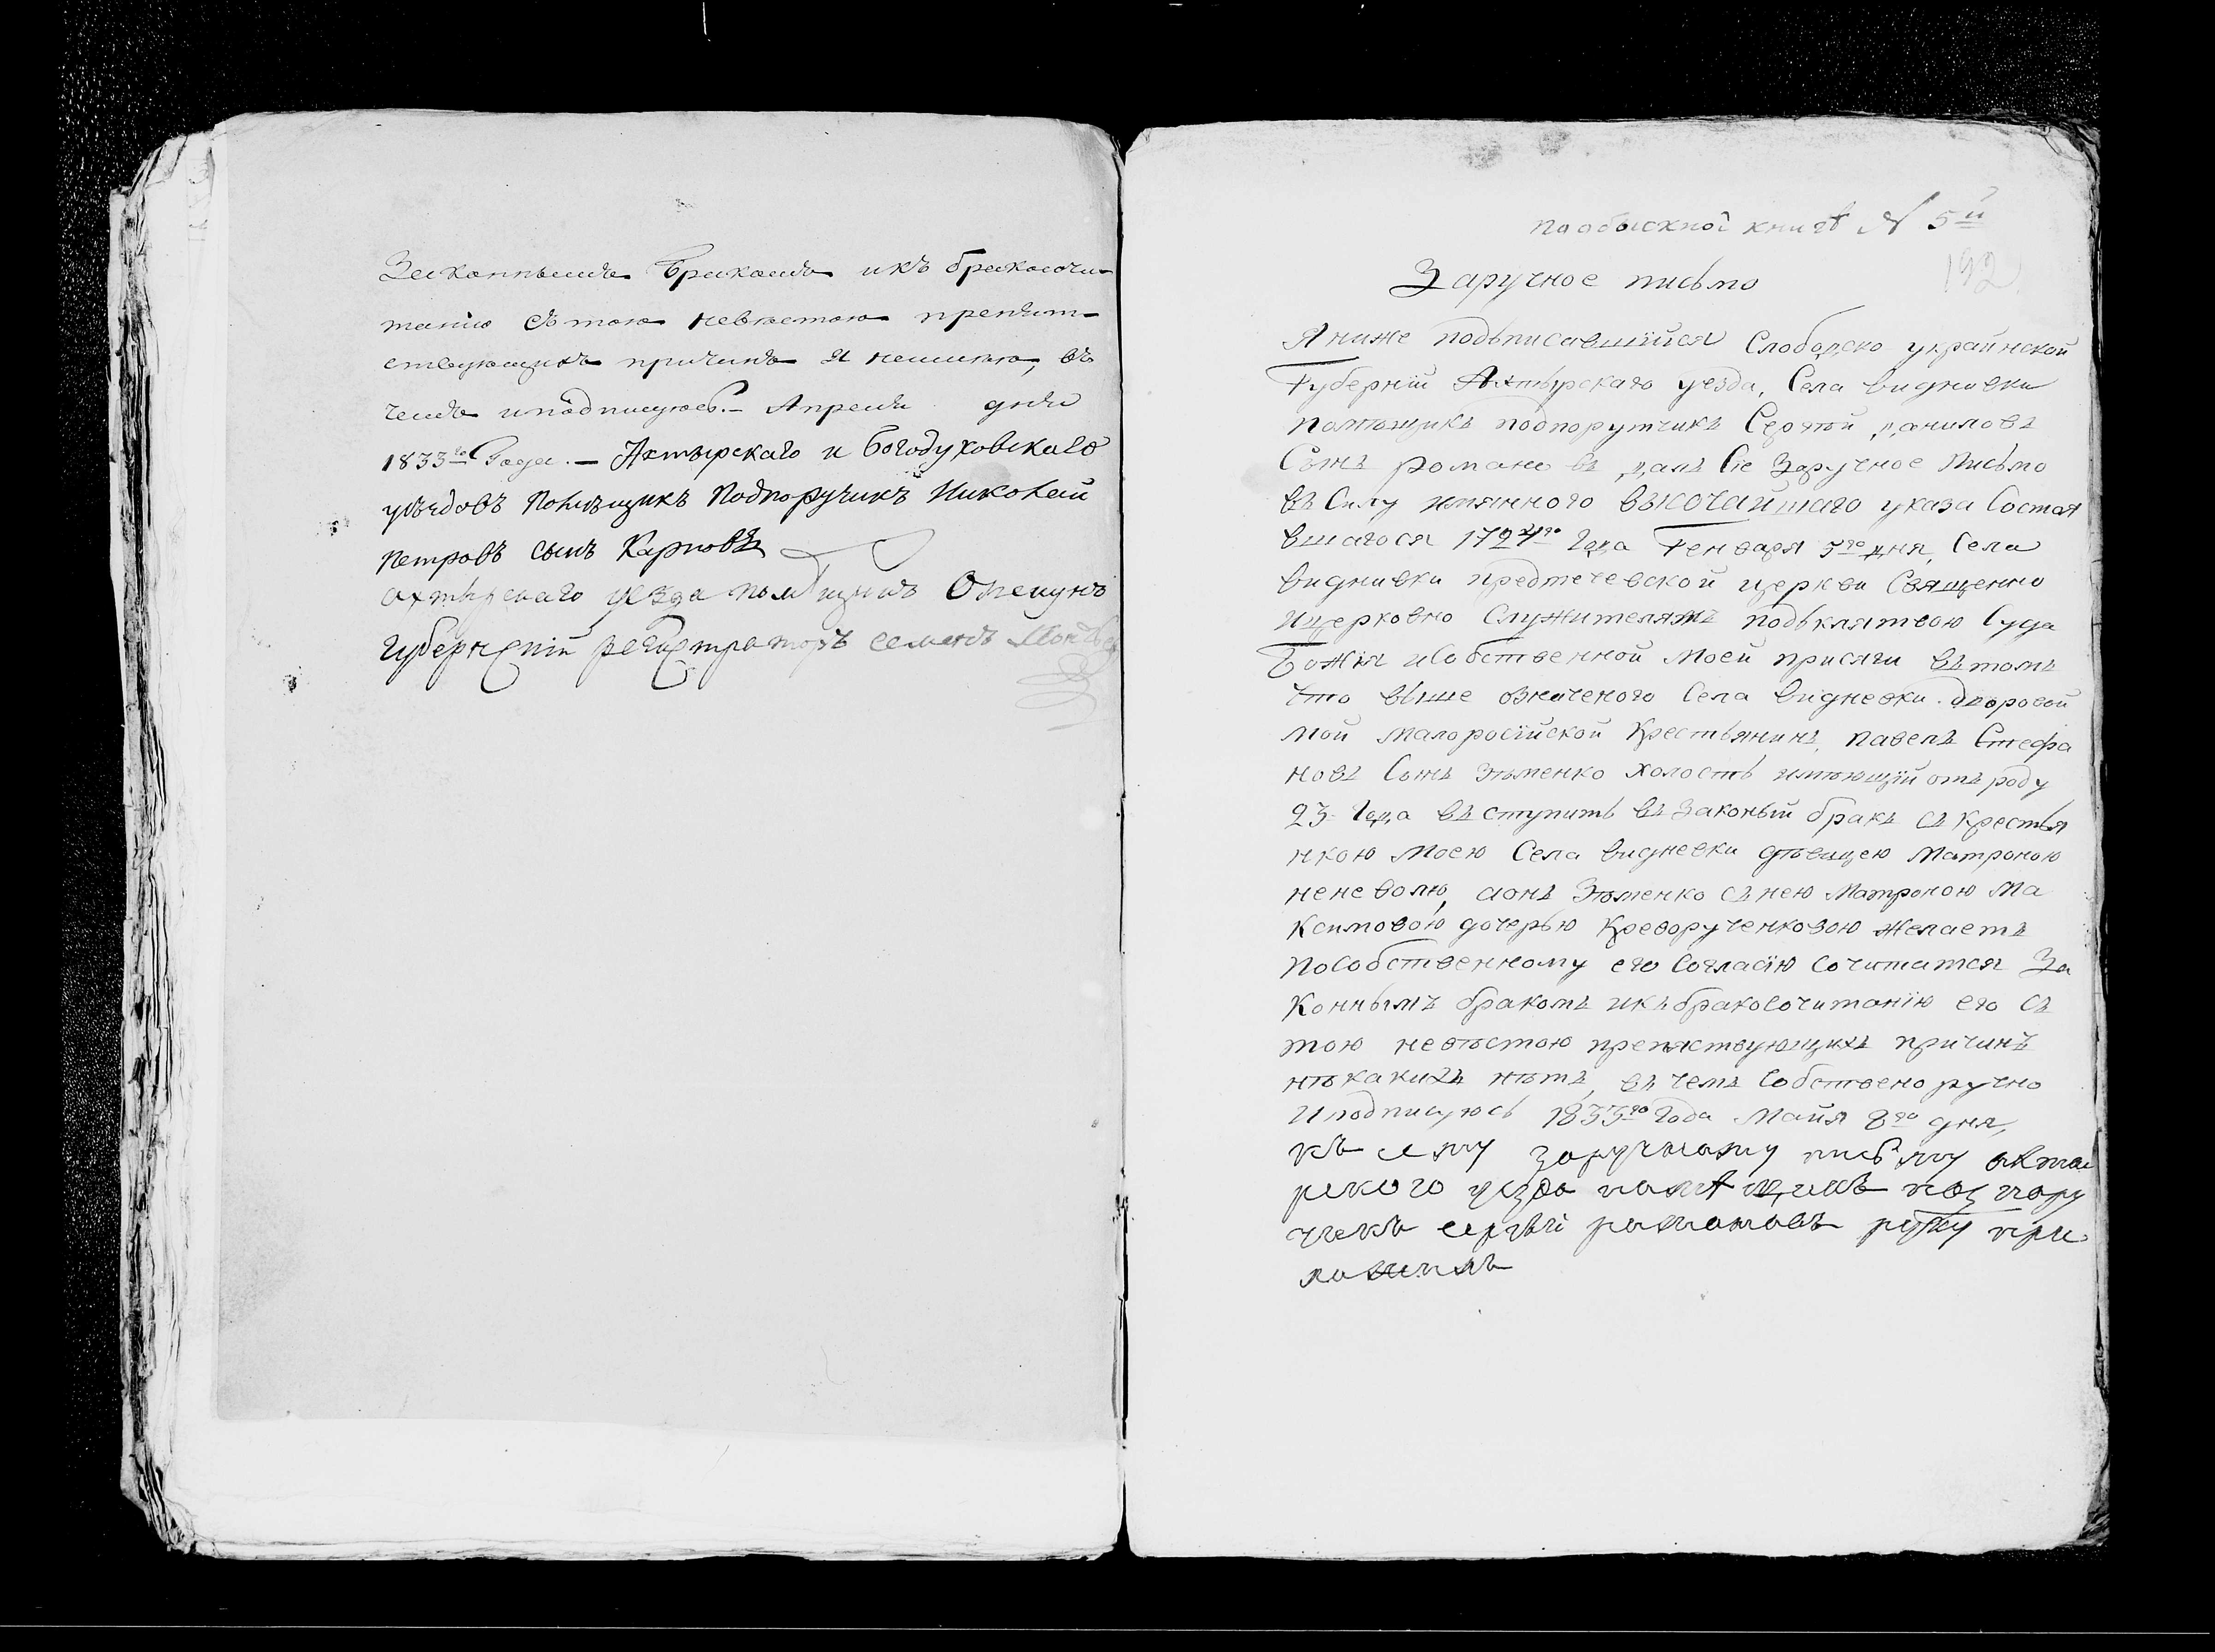 Законнымъ бракомъ икъ бракосочи-
танію стою невѣстою препят-
ствующихъ причинъ я неимѣю, въ
чемъ иподписуюсь. - Апреля дня
1833го Года. — Ахтырскаго и Богодуховскаго
уѣздовъ помѣщикъ Подпоручикъ Николай
Петровъ сынъ Карповъ
ахтырскаго уезда помѣщикъ Опекунъ
губернский регистраторъ семенъ
пообыскной книгѣ № 5й
192
Заручное письмо
Я ниже подъписавшійся Слободско украинской
Губерніи Ахтырскаго уезда, Села видневки
помѣщикъ подпорутчикъ Сергѣй даниловъ
Сынъ романовъ, далъ Сіе Заручное письмо
въ Силу имянного высочайшаго указа Состоя
вшагося 1724го Года Генваря 5го дня, Села
видневки предтечевской церкви Священно
ицерковно Служителямъ подъклятвою Суда
Божія иСобственной моей присяги въ томъ
что выше означеного Села видневки дворовой
мой малоросійской крестьянинъ, павелъ Стефа
новъ Сынъ Зѣменко холостъ имѣющій отъ роду
23 Года въ ступить въ Законый бракъ съ крестья
нкою моею Села видневки дѣвицею Матроною
неневолю, аонъ Зѣменко съ нею Матроною Ма
ксимовою дочерью Креворученковою желаетъ
посо́бственному его Согласію Сочитатся За
коннымъ бракомъ икъ бракосочитанію его съ
тою невѣстою препяствующихъ причинъ
нѣкакихъ нѣтъ, въ чемъ Собственоручно
иподписуюсь 1833го Года майя 8го дня,
къ сему заручному письму ахты
рского уезда помѣщикъ подпору
чикъ сергѣй романовъ руку при
ложилъ